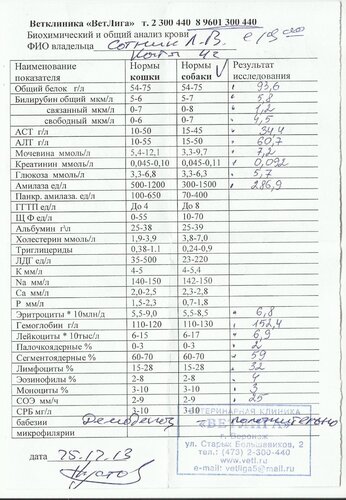 Ветклиника «ВетЛига» т. 2 300 440 8 9601 300 440
Биохимический и общий анализ крови
ФИО владельца Сотник Л.В.
Наименование показателя Нормы кошки Нормы собаки Результат исследования
Общий белок г/л 54-75 54-75 93,6
Билирубин общий мкм/л 5-6 5-7 5,8
связанный мкм/л 0-7 0-8 1,2
свободный мкм/л 0-6 0-7 4,5
АСТ г/л 10-50 15-45 34,4
АЛТ г/л 10-55 15-50 60,7
Мочевина ммоль/л 5,4-12,1 3,3-9,7 7,2
Креатинин ммоль/л 0,045-0,10 0,045-0,11 0,092
Глюкоза ммоль/л 3,3-6,8 3,3-6,3 5,7
Амилаза ед/л 500-1200 300-1500 286,9
Панкр. амилаза. ед/л 100-650 70-400
ГГТП ед/л До 4 До 8
Щ Ф ед/л 0-55 10-70
Альбумин г\л 25-38 25-39
Холестерин ммоль/л 1,9-3,9 3,8-7,0
Триглицериды 0,38-1.1 0,24-0,9
ЛДГ ед/л 35-500 23-220
К мм/л 4-5 4-5,4
Na мм/л 140-150 142-150
Ca мм/л 2,0-2,5 2,3-2,8
P мм/л 1,5-2,3 0,7-1,8
Эритроциты * 10млн/д 5,5-9,0 5,5-8,5 6,8
Гемоглобин г/л 110-120 110-130 152,4
Лейкоциты * 10тыс/л 6-15 6-17 6,9
Палочкоядерные % 0-3 0-3 2
Сегментоядерные % 60-70 60-70 59
Лимфоциты % 15-28 15-28 32
Эозинофилы % 2-8 2-8 4
Моноциты % 3-10 3-10 3
СОЭ мм/ч 2-9 2-9 25
СРБ мг/л 3-10 3-10
бабезии положительно
микрофилярии
ВЕТЕРИНАРНАЯ КЛИНИКА
"ВЕТЛИГА"
г. Воронеж
ул. Старых Большевиков, 2
тел.: (473) 2-300-440
www.vetl.ru
e-mail: vetliga5@mail.ru
дата 25.12.13